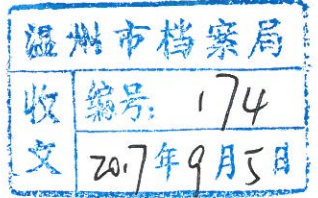 温州市档案局
收文
编号：174
2017年9月5日